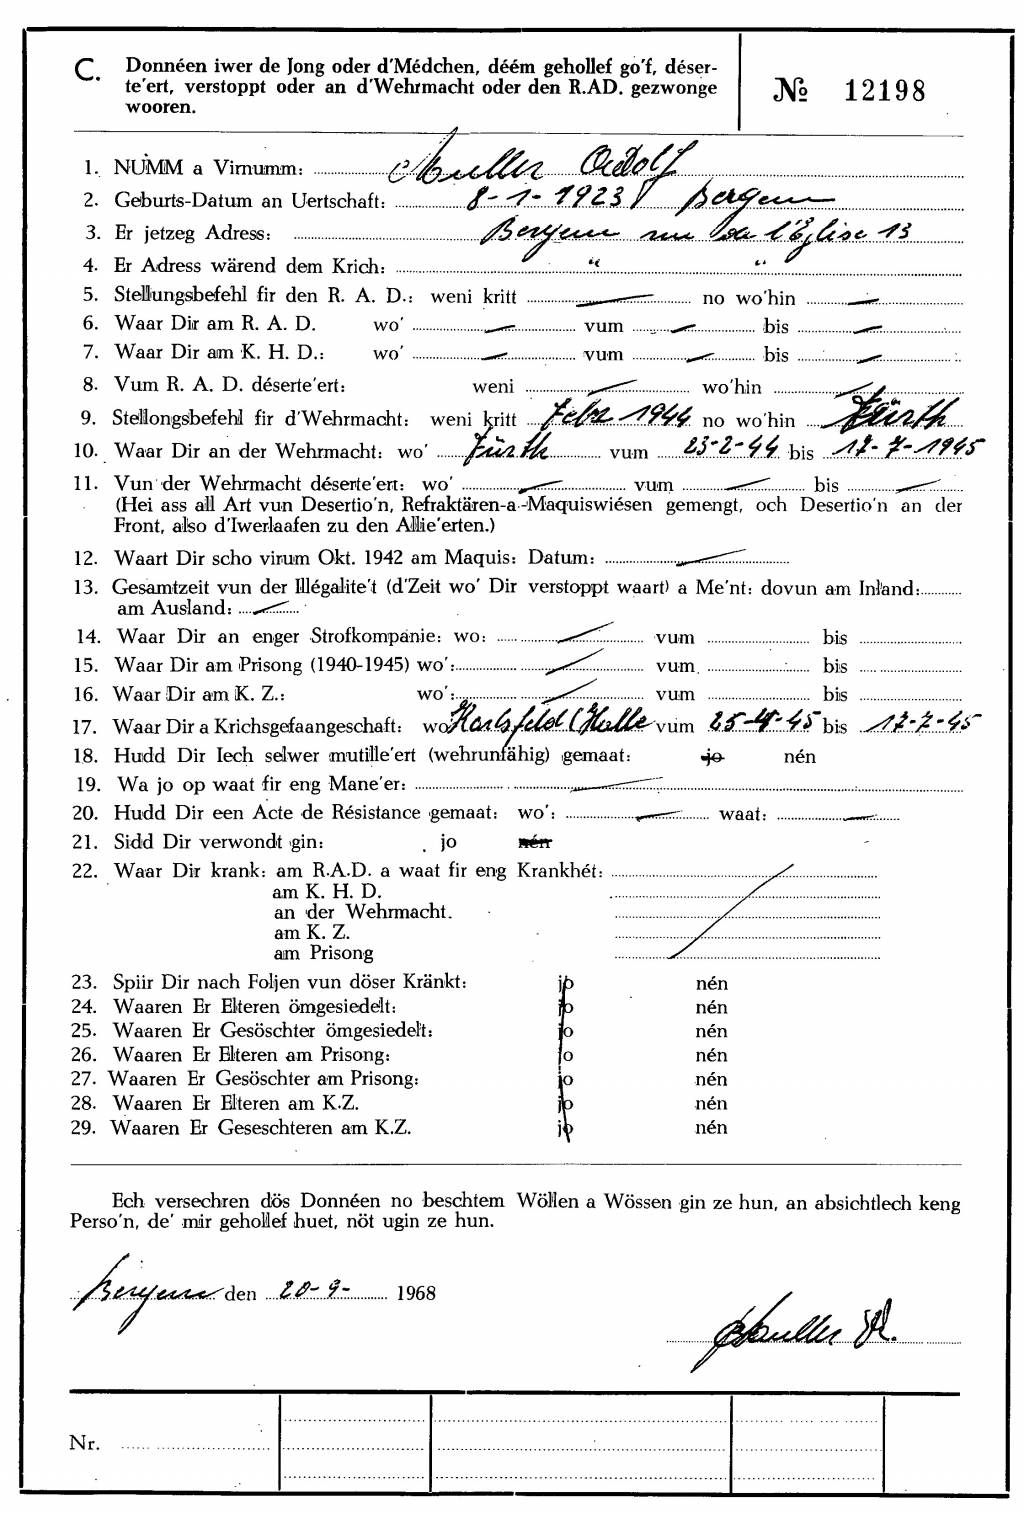 C. Donnéen iwer de Jong oder d'Médchen, déém gehollef go'f, déser-
te'ert, verstoppt oder an d'Wehrmacht oder den R.AD. gezwonge
wooren.
№ 12198
1. NUMM a Virnumm: Muller Rudolf
2. Geburts-Datum an Uertschaft: 8-1-1923 Bergem
3. Er jetzeg Adress: Bergem rue de l'Église 13
4. Er Adress wärend dem Krich: " "
5. Stellungsbefehl fir den R. A. D.: weni kritt — no wo'hin —
6. Waar Dir am R. A. D. wo' — vum — bis —
7. Waar Dir am K. H. D.: wo' — vum — bis —
8. Vum R. A. D. déserte'ert: weni — wo'hin —
9. Stellongsbefehl fir d'Wehrmacht: weni kritt Febr 1944 no wo'hin Fürth
10. Waar Dir an der Wehrmacht: wo' Fürth vum 23-2-44 bis 17-7-1945
11. Vun der Wehrmacht déserte'ert: wo' — vum — bis —
(Hei ass all Art vun Desertio'n, Refraktären-a-Maquiswiésen gemengt, och Desertio'n an der
Front, also d'Iwerlaafen zu den Allie'erten.)
12. Waart Dir scho virum Okt. 1942 am Maquis: Datum: —
13. Gesamtzeit vun der Illégalite't (d'Zeit wo' Dir verstoppt waart) a Me'nt: dovun am Inland:
am Ausland: —
14. Waar Dir an enger Strofkompanie: wo: — vum bis
15. Waar Dir am Prisong (1940-1945) wo': — vum bis
16. Waar Dir am K. Z.: wo': — vum bis
17. Waar Dir a Krichsgefaangeschaft: wo' Karlsfeld (Halle vum 25-4-45 bis 17-7-45
18. Hudd Dir Iech selwer mutille'ert (wehrunfähig) gemaat: jo nén
19. Wa jo op waat fir eng Mane'er: —
20. Hudd Dir een Acte de Résistance gemaat: wo': — waat: —
21. Sidd Dir verwondt gin: jo nén
22. Waar Dir krank: am R.A.D. a waat fir eng Krankhét:
am K. H. D.
an der Wehrmacht.
am K. Z.
am Prisong
23. Spiir Dir nach Foljen vun döser Kränkt: jo nén
24. Waaren Er Elteren ömgesiedelt: jo nén
25. Waaren Er Gesöschter ömgesiedelt: jo nén
26. Waaren Er Elteren am Prisong: jo nén
27. Waaren Er Gesöschter am Prisong: jo nén
28. Waaren Er Elteren am K.Z. jo nén
29. Waaren Er Geseschteren am K.Z. jo nén
Ech versechren dös Donnéen no beschtem Wöllen a Wössen gin ze hun, an absichtlech keng
Perso'n, de' mir gehollef huet, nöt ugin ze hun.
Bergem den 20-9- 1968
Muller R.
Nr.